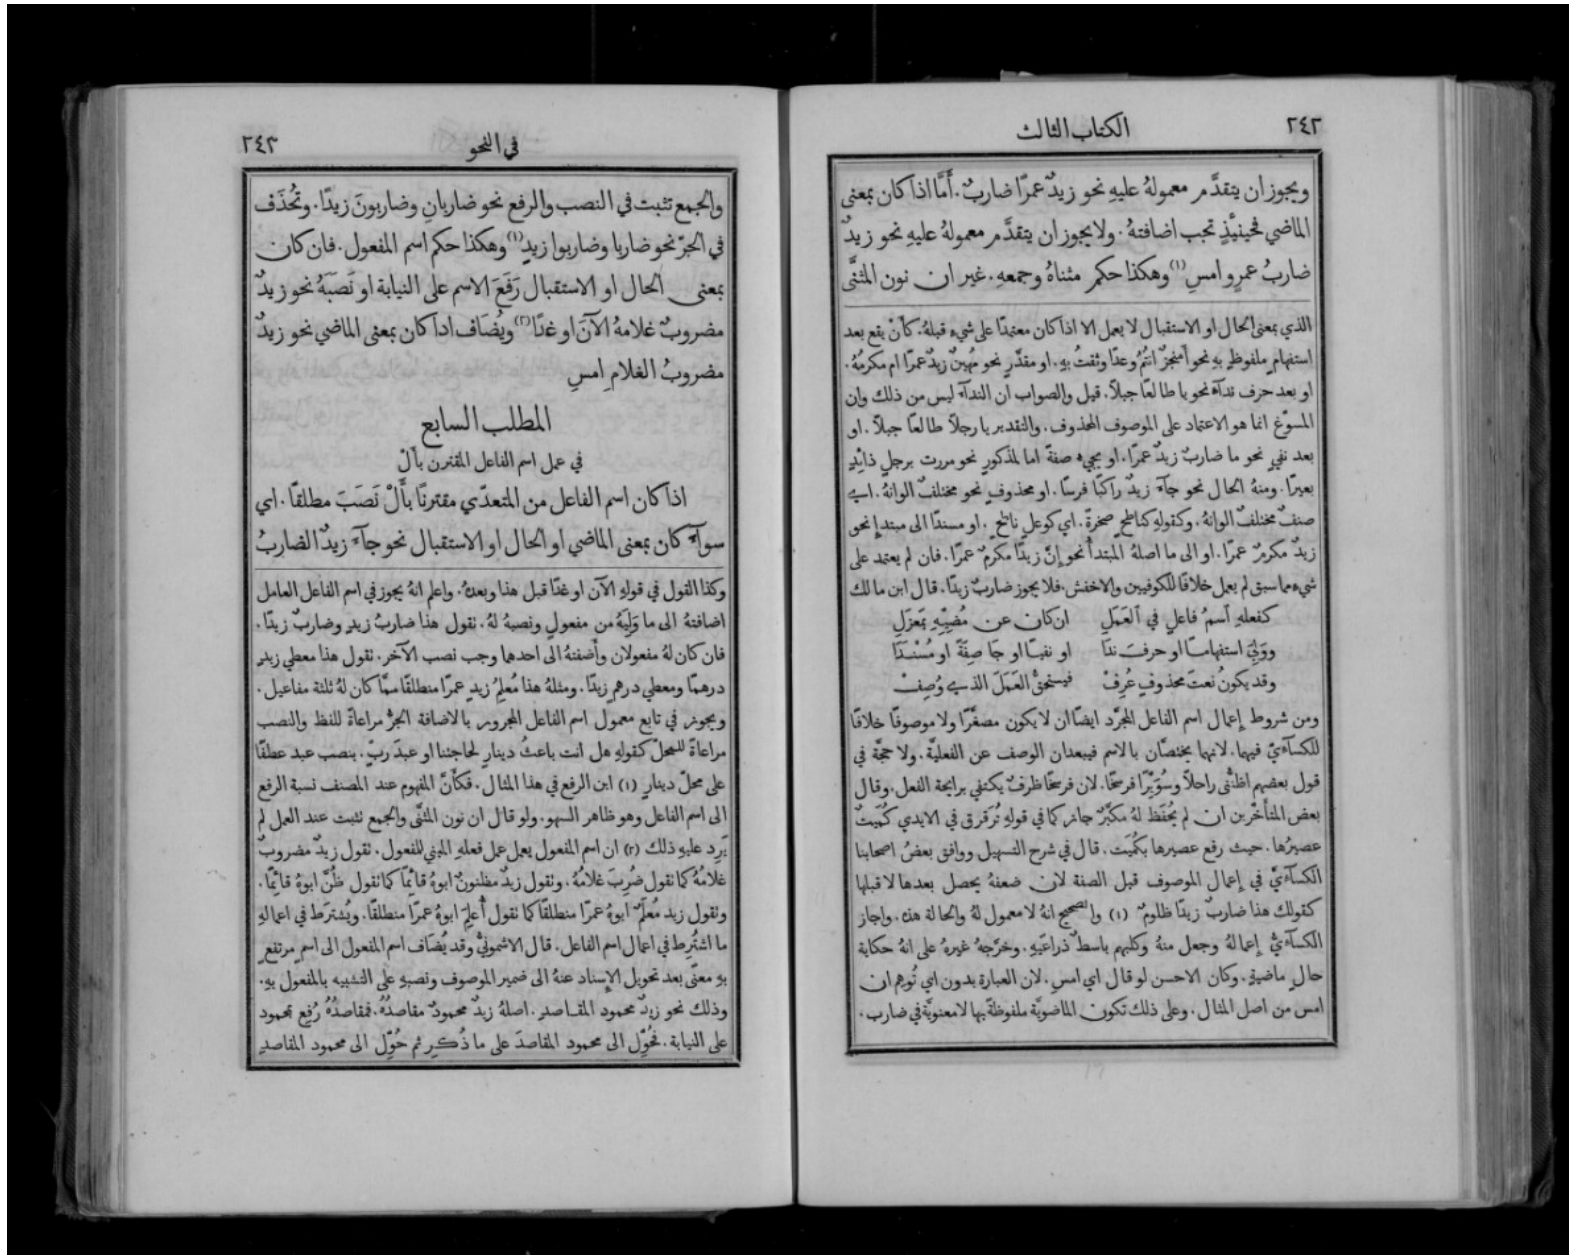 ٢٤٢
الكتاب الثالث
ويجوز ان يتقدَّم معمولهُ عليهِ نحو زيدٌ عمرًا ضاربٌ. أَمَّا اذا كان بمعنى
الماضي فحينئذٍ تجب اضافتهُ. ولا يجوز ان يتقدَّم معمولهُ عليهِ نحو زيدٌ
ضاربُ عمرٍو امسِ (١) وهكذا حكم مثناهُ وجمعهِ. غير ان نون المثنَّى
الذي بمعنى الحال او الاستقبال لا يعمل الا اذا كان معتمدًا على شيءٍ قبلهُ. كأنْ يقع بعد
استفهامٍ ملفوظٍ بهِ نحو أمنجزٌ انتُمُ وعدًا وثقتُ بهِ. او مقدَّرٍ نحو مُهينٌ زيدٌ عمرًا ام مكرمُهُ.
او بعد حرف ندآءٍ نحو يا طالعًا جبلاً. قيل والصواب ان الندآءَ ليس من ذلك وان
المسوّغ انما هو الاعتماد على الموصوف المحذوف. والتقدير يا رجلاً طالعًا جبلاً. او
بعد نفيٍ نحو ما ضاربٌ زيدٌ عمرًا. او يجيء صفةً اما لمذكورٍ نحو مررت برجلٍ ذائدٍ
بعيرًا. ومنهُ الحال نحو جآءَ زيدٌ راكبًا فرسًا. او محذوفٍ نحو مختلفٌ الوانهُ. اي
صنفٌ مختلفٌ الوانهُ. وكقولهِ كناطحٍ صخرةً. اي كوعلٍ ناطحٍ. او مسندًا الى مبتدإٍ نحو
زيدٌ مكرمٌ عمرًا. او الى ما اصلهُ المبتدأُ نحو إنّ زيدًا مكرمٌ عمرًا. فان لم يعتمد على
شيءٍ مما سبق لم يعمل خلافًا للكوفيين والاخفش. فلا يجوز ضاربٌ زيدًا. قال ابن مالك
كفعلهِ اسمُ فاعلٍ في العَمَلِ ان كان عن مُضِيِّهِ بمَعزَلِ
ووَلِيَ استفهامًا او حرفَ ندا او نفيًا او جا صِفَةً او مُسْنَدَا
وقد يكونُ نعتَ محذوفٍ عُرِفْ فيستحقُّ العَمَلَ الذي وُصِفْ
ومن شروط إعمال اسم الفاعل المجرَّد ايضًا ان لا يكون مصغَّرًا ولا موصوفًا خلافًا
للكسآءيّ فيهما. لانهما يختصَّان بالاسم فيبعدان الوصف عن الفعليَّة. ولا حجَّة في
قول بعضهم اظنُّني راحلاً وسُوَيْرًا فرسخًا. لان فرسخًا ظرفٌ يكتفي برائحة الفعل. وقال
بعض المتأخّرين ان لم يُحفَظ لهُ مكبَّرٌ جاز كما في قولهِ تُرَقرَق في الايدي كُمَيتٌ
عصيرُها. حيث رفع عصيرها بكُمَيت. قال في شرح التسهيل ووافق بعضُ اصحابنا
الكسآءيَّ في إعمال الموصوف قبل الصفة لان ضعفهُ يحصل بعدها لا قبلها
كقولك هذا ضاربٌ زيدًا ظلومٌ (١) والصحيح انهُ لا معمول لهُ والحالة هذه. واجاز
الكسآءيُّ إعمالهُ وجعل منهُ وكلبهم باسطٌ ذراعَيهِ. وخرّجهُ غيرهُ على انهُ حكاية
حالٍ ماضيةٍ. وكان الاحسن لو قال اي امسِ. لان العبارة بدون اي تُوهِم ان
امس من اصل المثال. وعلى ذلك تكون الماضويَّة ملفوظةً بها لا معنويَّة في ضارب.
في النحو
٢٤٣
والجمع تثبت في النصب والرفع نحو ضاربانِ وضاربونَ زيدًا. وتُحذَف
في الجرّ نحو ضاربا وضاربوا زيدٍ (١) وهكذا حكم اسم المفعول. فان كان
بمعنى الحال او الاستقبال رَفَعَ الاسم على النيابة او نَصَبَهُ نحو زيدٌ
مضروبٌ غلامهُ الآنَ او غدًا (٢) ويُضَاف اذا كان بمعنى الماضي نحو زيدٌ
مضروبُ الغلامِ امسِ
المطلب السابع
في عمل اسم الفاعل المقترن بأَلْ
اذا كان اسم الفاعل من المتعدّي مقترنًا بأَلْ نَصَبَ مطلقًا. اي
سوآءٌ كان بمعنى الماضي او الحال او الاستقبال نحو جآءَ زيدٌ الضاربُ
وكذا القول في قولهِ الآن او غدًا قبل هذا وبعدهُ. واعلم انهُ يجوز في اسم الفاعل العامل
اضافتهُ الى ما وَلِيَهُ من مفعولٍ ونصبهُ لهُ. تقول هذا ضاربُ زيدٍ وضاربٌ زيدًا.
فان كان لهُ مفعولان وأضفتهُ الى احدهما وجب نصب الآخر. تقول هذا معطي زيدٍ
درهمًا ومعطي درهمٍ زيدًا. ومثلهُ هذا مُعلِمُ زيدٍ عمرًا منطلقًا ممَّا كان لهُ ثلثة مفاعيل.
ويجوز في تابع معمول اسم الفاعل المجرور بالاضافة الجرُّ مراعاةً للفظ والنصب
مراعاةً للمحلّ كقولهِ هل انت باعثُ دينارٍ لحاجتنا او عبدَ ربٍّ. بنصب عبد عطفًا
على محلّ دينارٍ (١) اين الرفع في هذا المثال. فكأَنَّ المفهوم عند المصنف نسبة الرفع
الى اسم الفاعل وهو ظاهر السهو. ولو قال ان نون المثنَّى والجمع تثبت عند العمل لم
يَرِد عليهِ ذلك (٢) ان اسم المفعول يعمل عمل فعلهِ المبني للمفعول. تقول زيدٌ مضروبٌ
غلامُهُ كما تقول ضُرِبَ غلامُهُ. وتقول زيدٌ مظنونٌ ابوهُ قائِمًا كما تقول ظُنَّ ابوهُ قائِمًا.
وتقول زيد مُعلَمٌ ابوهُ عمرًا منطلقًا كما تقول أُعلِمَ ابوهُ عمرًا منطلقًا. ويُشترَط في اعمالهِ
ما اشتُرِط في اعمال اسم الفاعل. قال الاشمونيُّ وقد يُضَاف اسم المفعول الى اسمٍ مرتفعٍ
بهِ معنًى بعد تحويل الإسناد عنهُ الى ضمير الموصوف ونصبهِ على التشبيه بالمفعول بهِ.
وذلك نحو زيدٌ محمود المقاصدِ. اصلهُ زيدٌ محمودٌ مقاصدُهُ. فمقاصدُهُ رُفِع بمحمود
على النيابة. فحُوِّل الى محمود المقاصدَ على ما ذُكر ثم حُوِّل الى محمود المقاصدِ